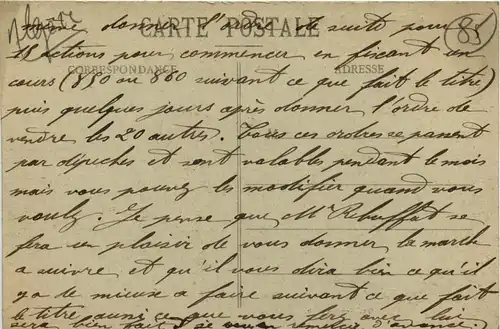 85
CARTE POSTALE
donner l'ordre de suite pour
18 actions pour commencer en fixant un
CORRESPONDANCE
ADRESSE
cours (850 ou 860 suivant ce que fait le titre)
puis quelques jours après donner l'ordre de
vendre les 20 autres. Tous ces ordres se passent
par dépêches et sont valables pendant le mois
mais vous pouvez les modifier quand vous
voulez. Je pense que Mr Rebuffat se
fera un plaisir de vous donner la marche
a suivre et qu'il vous dira bien ce qu'il
y a de mieux a faire suivant ce que fait
le titre aussi ce que vous ferez avec lui
sera bien fait